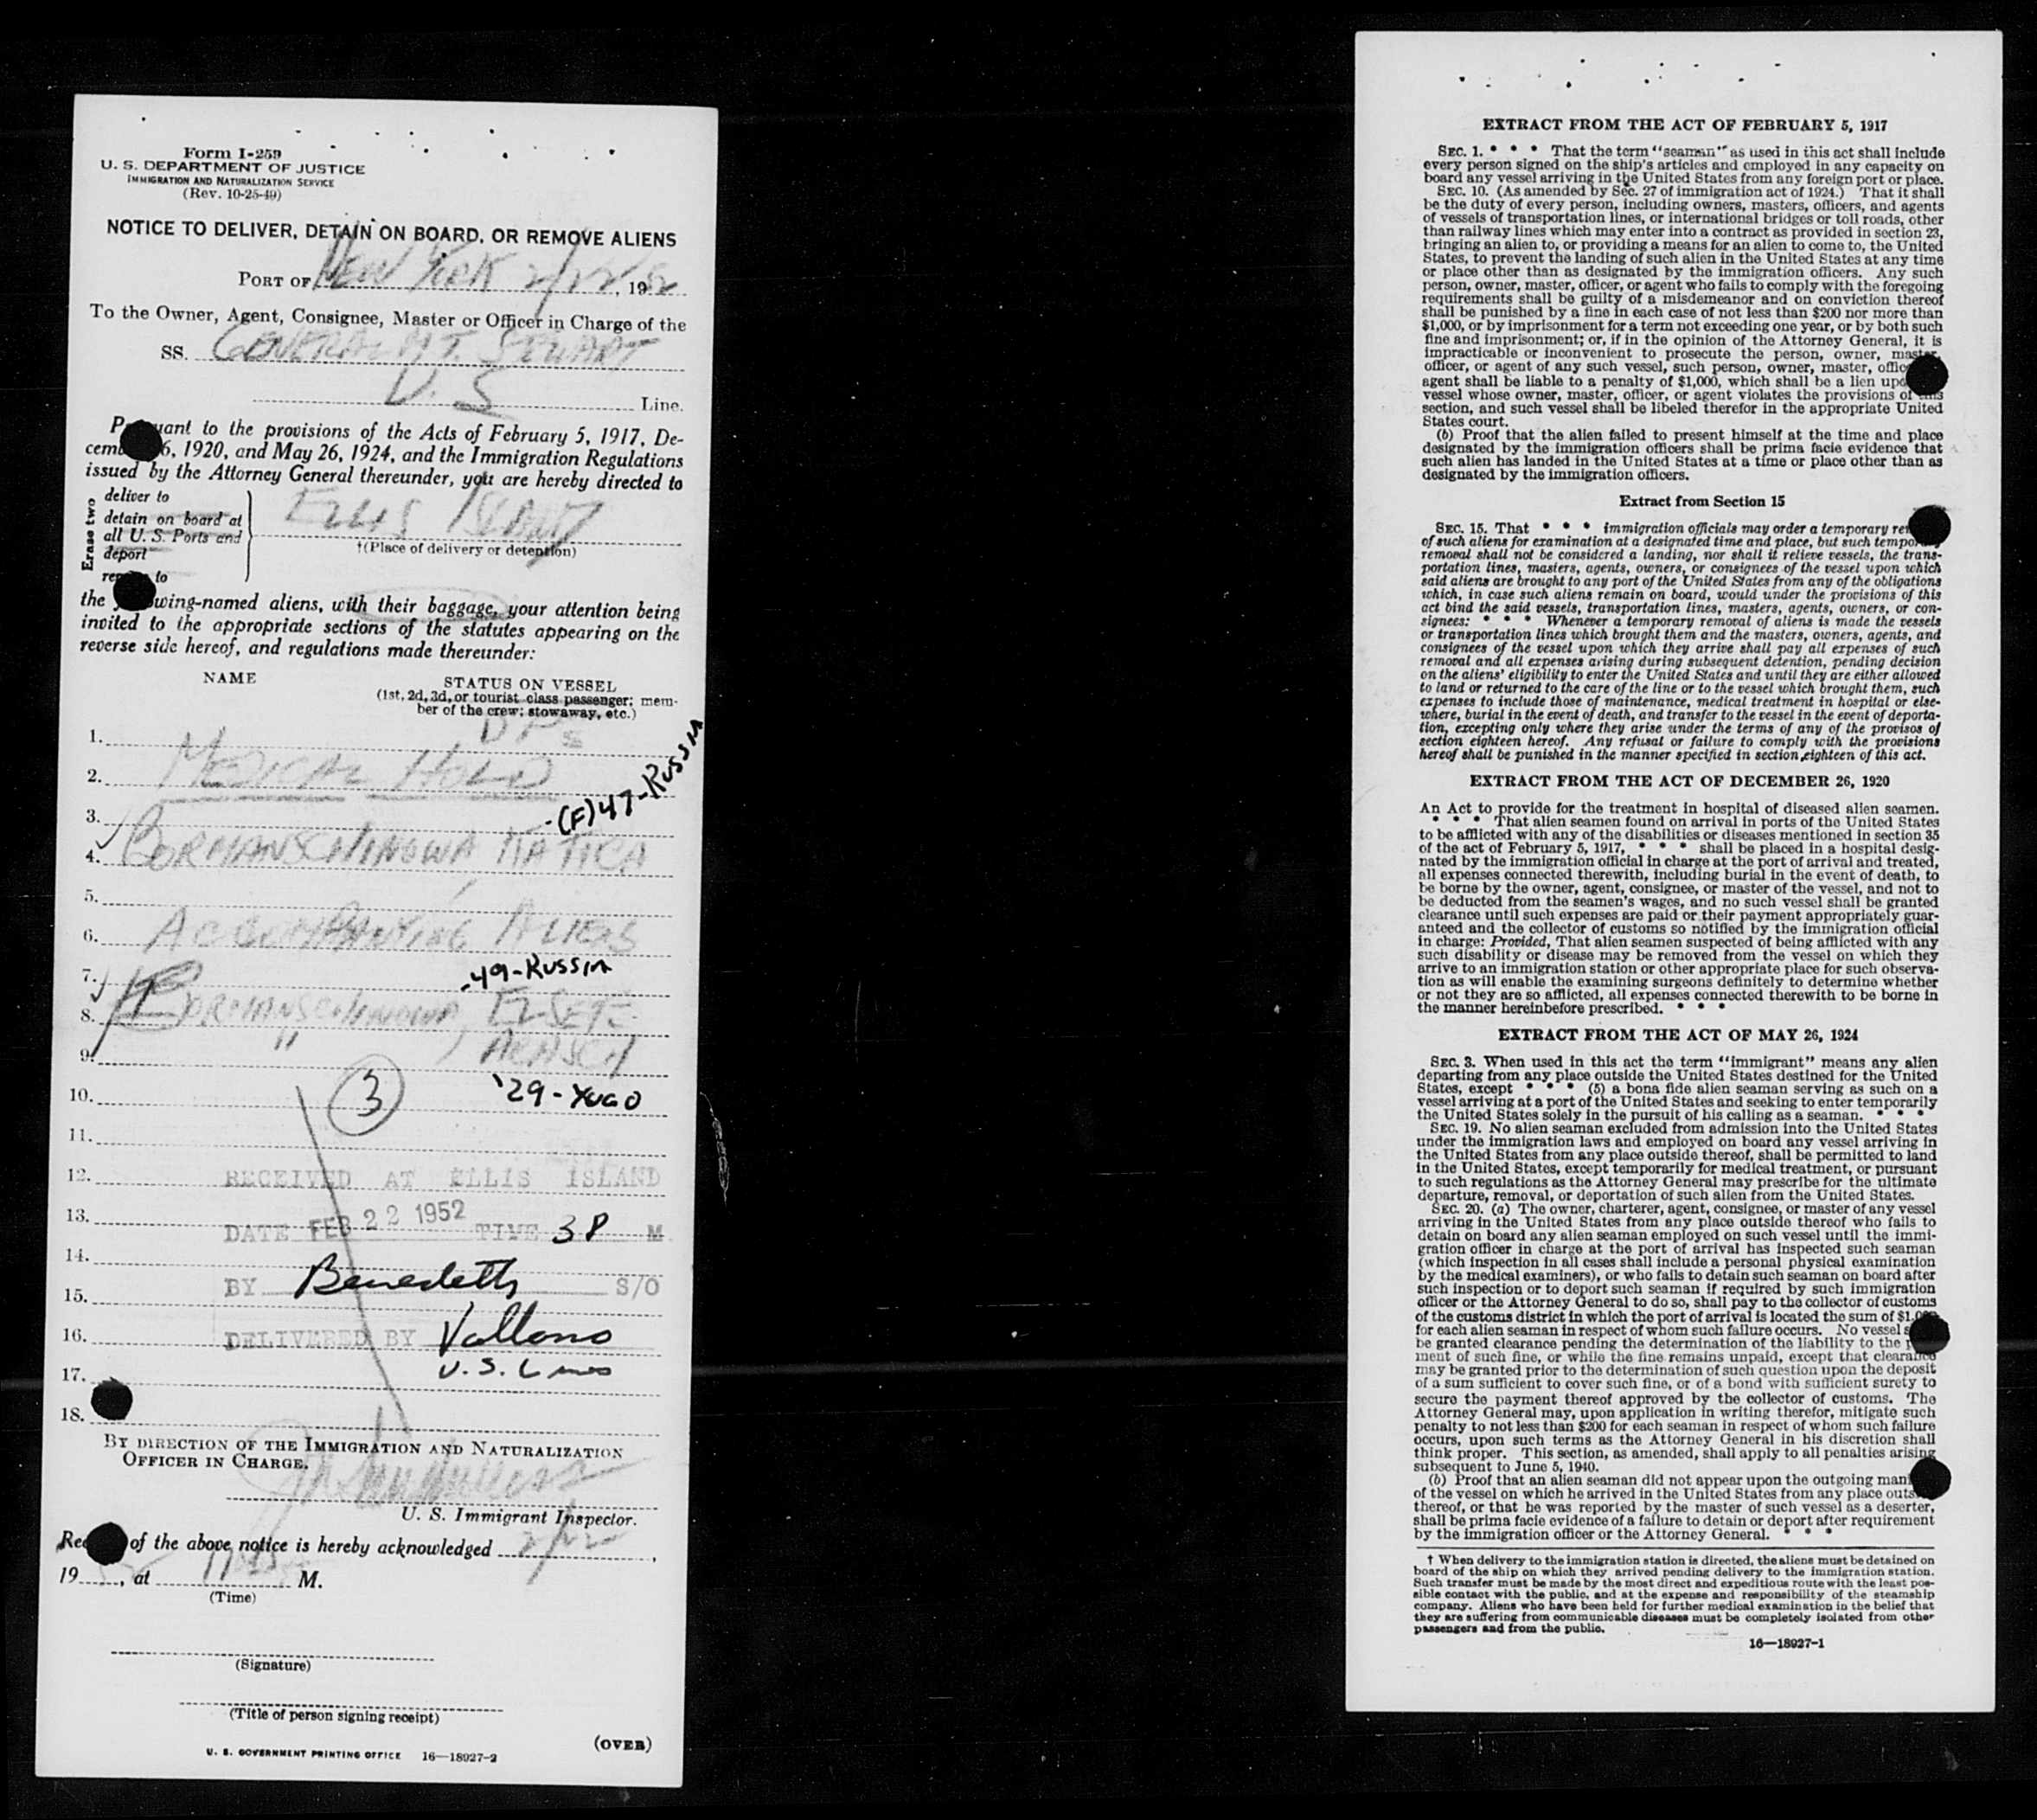 Form I-259
U. S. DEPARTMENT OF JUSTICE
IMMIGRATION AND NATURALIZATION SERVICE
(Rev. 10-25-49)
NOTICE TO DELIVER, DETAIN ON BOARD, OR REMOVE ALIENS
PORT OF NEW YORK 2/22, 1952
To the Owner, Agent, Consignee, Master or Officer in Charge of the
SS. GENERAL M. T. STUART
U. S Line.
Pursuant to the provisions of the Acts of February 5, 1917, De-
cember 26, 1920, and May 26, 1924, and the Immigration Regulations
issued by the Attorney General thereunder, you are hereby directed to
Erase two
deliver to
detain on board at
all U. S. Ports and
deport
remove to
ELLIS ISLAND
†(Place of delivery or detention)
the following-named aliens, with their baggage, your attention being
invited to the appropriate sections of the statutes appearing on the
reverse side hereof, and regulations made thereunder:
NAME
STATUS ON VESSEL
(1st, 2d, 3d, or tourist class passenger; mem-
ber of the crew; stowaway, etc.)
1. DPs
2. MEDICAL HOLD
3. -(F)47-RUSSIA
4. BORMANSCHINOWA KATICA
5.
6. ACCOMPANYING ALIENS
7. -49-RUSSIA
8. BORMANSCHINOWA, ELSETE
9. " ,
10. (3) '29-YUGO
11.
12. RECEIVED AT ELLIS ISLAND
13. DATE FEB 22 1952 TIME 3P M
14.
BY Benedetti S/O
15.
16. DELIVERED BY Vallono
U.S. Lines
17.
18.
BY DIRECTION OF THE IMMIGRATION AND NATURALIZATION
OFFICER IN CHARGE.
U. S. Immigrant Inspector.
Receipt of the above notice is hereby acknowledged 2/22,
19, at M.
(Time)
(Signature)
(Title of person signing receipt)
(OVER)
U. S. GOVERNMENT PRINTING OFFICE 16—18927-2
EXTRACT FROM THE ACT OF FEBRUARY 5, 1917
SEC. 1. * * * That the term "seaman" as used in this act shall include
every person signed on the ship's articles and employed in any capacity on
board any vessel arriving in the United States from any foreign port or place.
SEC. 10. (As amended by Sec. 27 of immigration act of 1924.) That it shall
be the duty of every person, including owners, masters, officers, and agents
of vessels of transportation lines, or international bridges or toll roads, other
than railway lines which may enter into a contract as provided in section 23,
bringing an alien to, or providing a means for an alien to come to, the United
States, to prevent the landing of such alien in the United States at any time
or place other than as designated by the immigration officers. Any such
person, owner, master, officer, or agent who fails to comply with the foregoing
requirements shall be guilty of a misdemeanor and on conviction thereof
shall be punished by a fine in each case of not less than $200 nor more than
$1,000, or by imprisonment for a term not exceeding one year, or by both such
fine and imprisonment; or, if in the opinion of the Attorney General, it is
impracticable or inconvenient to prosecute the person, owner, master,
officer, or agent of any such vessel, such person, owner, master, officer, or
agent shall be liable to a penalty of $1,000, which shall be a lien upon the
vessel whose owner, master, officer, or agent violates the provisions of this
section, and such vessel shall be libeled therefor in the appropriate United
States court.
(b) Proof that the alien failed to present himself at the time and place
designated by the immigration officers shall be prima facie evidence that
such alien has landed in the United States at a time or place other than as
designated by the immigration officers.
Extract from Section 15
SEC. 15. That * * * immigration officials may order a temporary removal
of such aliens for examination at a designated time and place, but such temporary
removal shall not be considered a landing, nor shall it relieve vessels, the trans-
portation lines, masters, agents, owners, or consignees of the vessel upon which
said aliens are brought to any port of the United States from any of the obligations
which, in case such aliens remain on board, would under the provisions of this
act bind the said vessels, transportation lines, masters, agents, owners, or con-
signees: * * * Whenever a temporary removal of aliens is made the vessels
or transportation lines which brought them and the masters, owners, agents, and
consignees of the vessel upon which they arrive shall pay all expenses of such
removal and all expenses arising during subsequent detention, pending decision
on the aliens' eligibility to enter the United States and until they are either allowed
to land or returned to the care of the line or to the vessel which brought them, such
expenses to include those of maintenance, medical treatment in hospital or else-
where, burial in the event of death, and transfer to the vessel in the event of deporta-
tion, excepting only where they arise under the terms of any of the provisos of
section eighteen hereof. Any refusal or failure to comply with the provisions
hereof shall be punished in the manner specified in section eighteen of this act.
EXTRACT FROM THE ACT OF DECEMBER 26, 1920
An Act to provide for the treatment in hospital of diseased alien seamen.
* * * That alien seamen found on arrival in ports of the United States
to be afflicted with any of the disabilities or diseases mentioned in section 35
of the act of February 5, 1917, * * * shall be placed in a hospital desig-
nated by the immigration official in charge at the port of arrival and treated,
all expenses connected therewith, including burial in the event of death, to
be borne by the owner, agent, consignee, or master of the vessel, and not to
be deducted from the seamen's wages, and no such vessel shall be granted
clearance until such expenses are paid or their payment appropriately guar-
anteed and the collector of customs so notified by the immigration official
in charge: Provided, That alien seamen suspected of being afflicted with any
such disability or disease may be removed from the vessel on which they
arrive to an immigration station or other appropriate place for such observa-
tion as will enable the examining surgeons definitely to determine whether
or not they are so afflicted, all expenses connected therewith to be borne in
the manner hereinbefore prescribed. * * *
EXTRACT FROM THE ACT OF MAY 26, 1924
SEC. 3. When used in this act the term "immigrant" means any alien
departing from any place outside the United States destined for the United
States, except * * * (5) a bona fide alien seaman serving as such on a
vessel arriving at a port of the United States and seeking to enter temporarily
the United States solely in the pursuit of his calling as a seaman. * * *
SEC. 19. No alien seaman excluded from admission into the United States
under the immigration laws and employed on board any vessel arriving in
the United States from any place outside thereof, shall be permitted to land
in the United States, except temporarily for medical treatment, or pursuant
to such regulations as the Attorney General may prescribe for the ultimate
departure, removal, or deportation of such alien from the United States.
SEC. 20. (a) The owner, charterer, agent, consignee, or master of any vessel
arriving in the United States from any place outside thereof who fails to
detain on board any alien seaman employed on such vessel until the immi-
gration officer in charge at the port of arrival has inspected such seaman
(which inspection in all cases shall include a personal physical examination
by the medical examiners), or who fails to detain such seaman on board after
such inspection or to deport such seaman if required by such immigration
officer or the Attorney General to do so, shall pay to the collector of customs
of the customs district in which the port of arrival is located the sum of $1,000
for each alien seaman in respect of whom such failure occurs. No vessel shall
be granted clearance pending the determination of the liability to the pay-
ment of such fine, or while the fine remains unpaid, except that clearance
may be granted prior to the determination of such question upon the deposit
of a sum sufficient to cover such fine, or of a bond with sufficient surety to
secure the payment thereof approved by the collector of customs. The
Attorney General may, upon application in writing therefor, mitigate such
penalty to not less than $200 for each seaman in respect of whom such failure
occurs, upon such terms as the Attorney General in his discretion shall
think proper. This section, as amended, shall apply to all penalties arising
subsequent to June 5, 1940.
(b) Proof that an alien seaman did not appear upon the outgoing manifest
of the vessel on which he arrived in the United States from any place outside
thereof, or that he was reported by the master of such vessel as a deserter,
shall be prima facie evidence of a failure to detain or deport after requirement
by the immigration officer or the Attorney General. * * *
† When delivery to the immigration station is directed, the aliens must be detained on
board of the ship on which they arrived pending delivery to the immigration station.
Such transfer must be made by the most direct and expeditious route with the least pos-
sible contact with the public, and at the expense and responsibility of the steamship
company. Aliens who have been held for further medical examination in the belief that
they are suffering from communicable diseases must be completely isolated from other
passengers and from the public.
16—18927-1